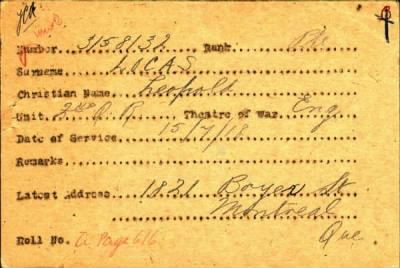 Number 3158132 Rank Pte
Surname LUCAS
Christian Name Leopold
Unit 2nd Q R Theatre of War Eng
Date of Service 15/7/18
Remarks
Latest Address 1821 Boyer St
Montreal
Que
Roll No. A Page 616